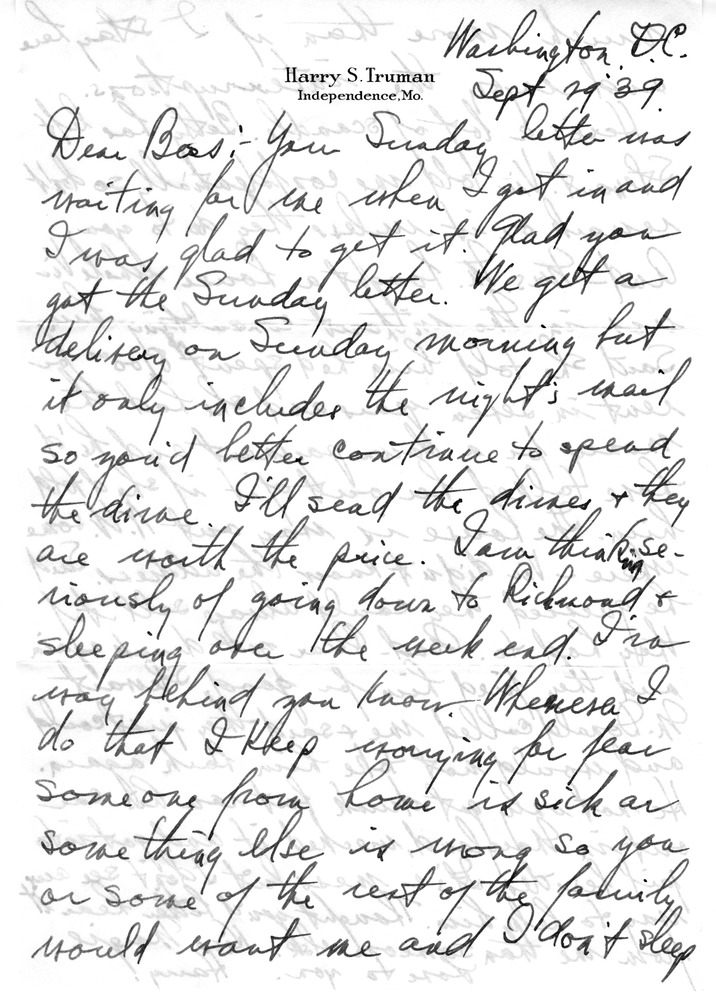 Washington, D.C.
Harry S. Truman
Independence, Mo.
Sept 29 '39.
Dear Bess:- Your Sunday letter was
waiting for me when I got in and
I was glad to get it. Glad you
got the Sunday letter. We get a
delivery on Sunday morning but
it only includes the night's mail
so you'd better continue to spend
the dime. I'll send the dimes & they
are worth the price. I am thinking se-
riously of going down to Richmond &
sleeping over the week end. I'm
way behind you know. Whenever I
do that I keep worrying for fear
someone from home is sick or
something else is wrong so you
or some of the rest of the family
would want me and I don't sleep